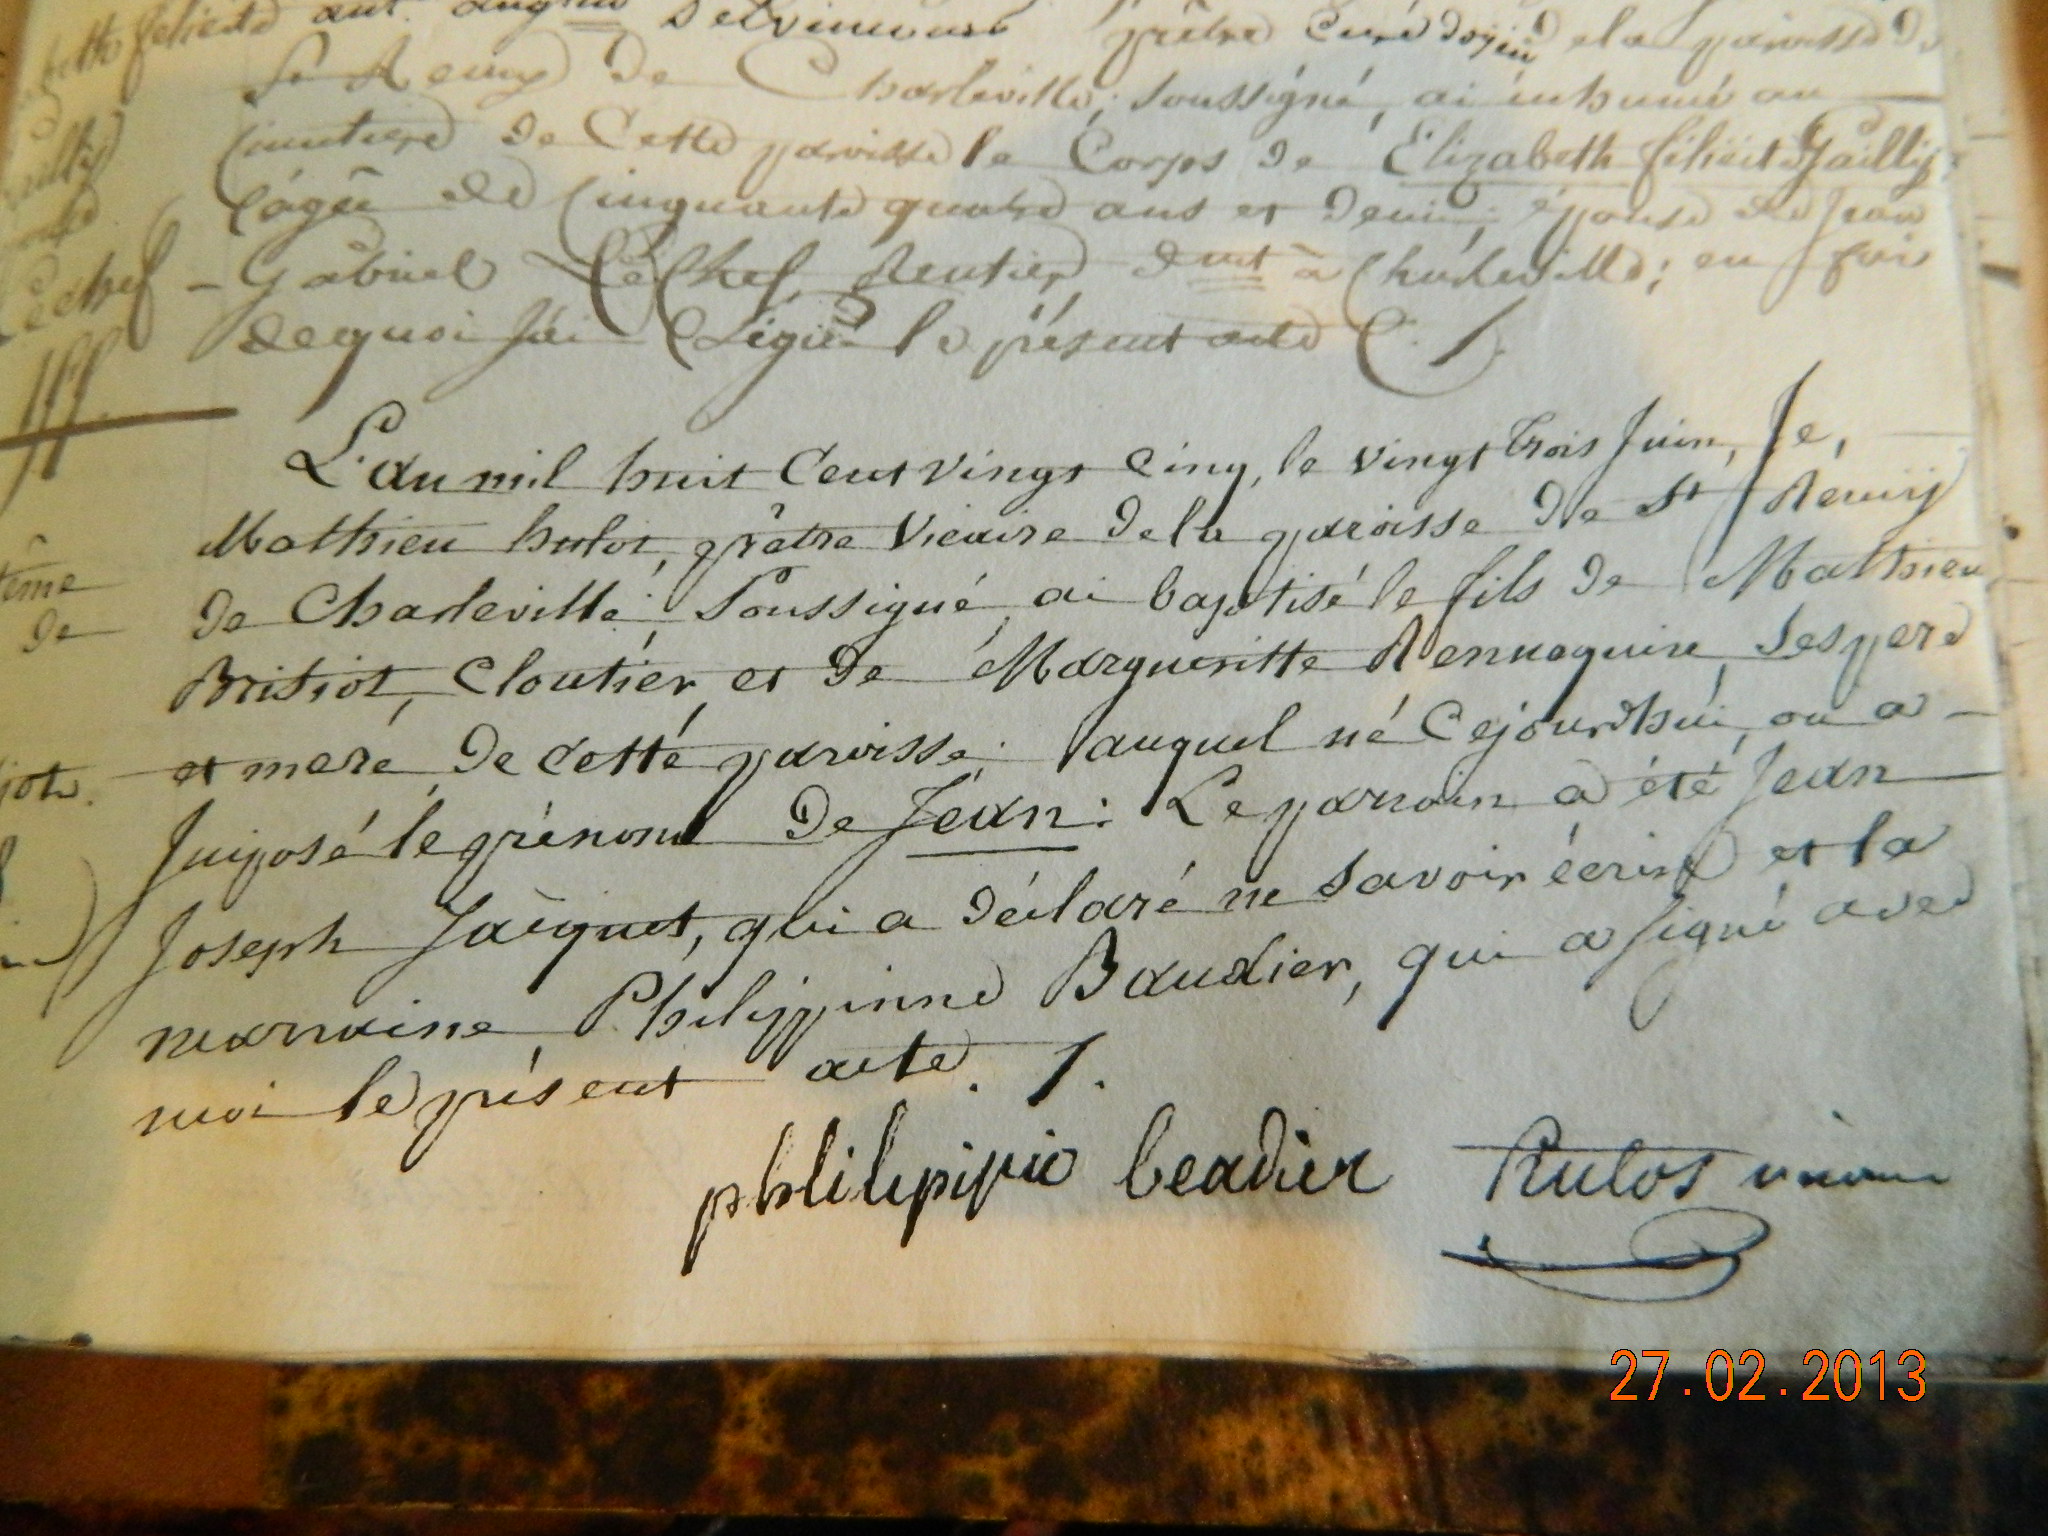 prêtre Curé doyen de la paroisse de
St Remy de Charleville, soussigné, ai inhumé au
Cimetiere de Cette paroisse le Corps de Elizabeth félicité Gailly,
âgée de Cinquante quatre ans et demi, épouse de Jean
Gabriel LeChef, Rentier dmt à Charleville; en foi
Lechef
de quoi j'ai rédigé le présent acte
L'an mil huit Cent vingt Cinq, le vingt trois Juin, Je,
Mathieu hulot, prêtre Vicaire de la paroisse de St Remy
de Charleville, Soussigné, ai baptisé le fils de Mathieu
tême
de
Cloutier, et de Margueritte Rennequin, Ses pere
et mere, de cette paroisse; auquel né Cejourdhui, on a
Imposé le prénom de Jean: Le parrain a été Jean
Joseph Jacquet, qui a déclaré ne savoir écrire et la
marraine Philippinne Baudier, qui a signé avec
moi le présent acte. /.
phlilipipie beadier Hulot vicaire
27.02.2013